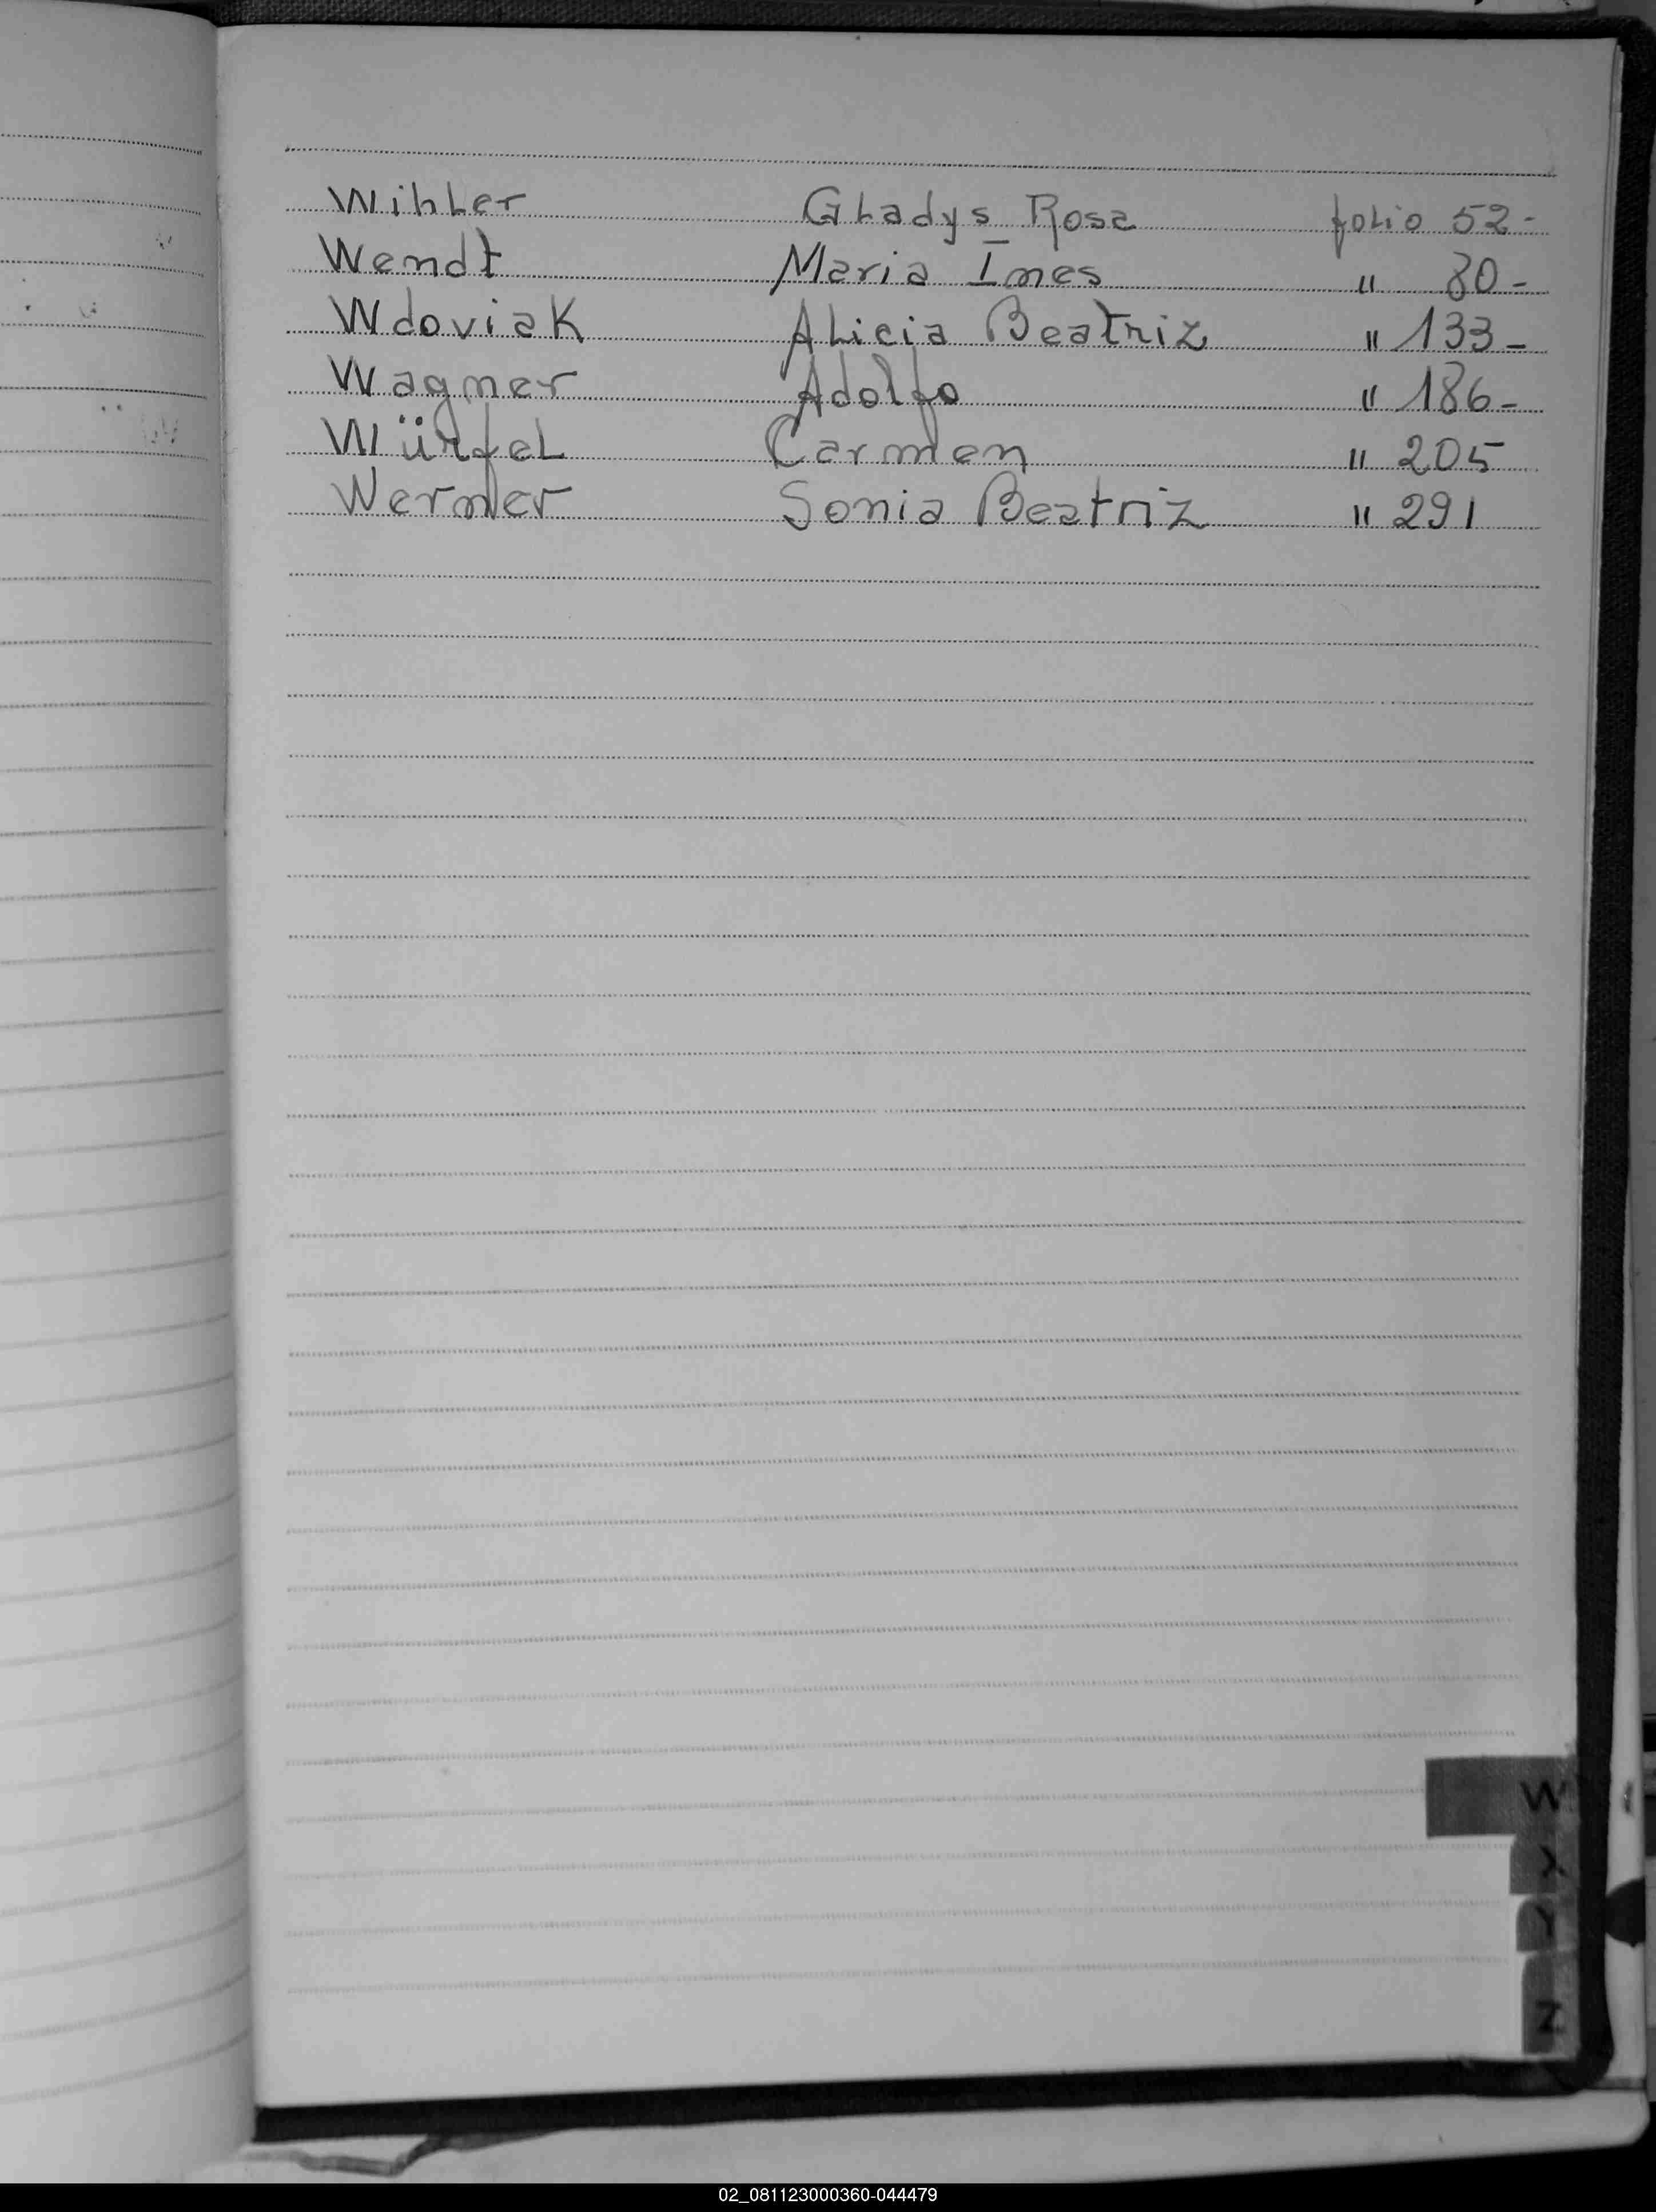 Wihler Gladys Rosa folio 52-
Wendt Maria Ines " 80-
Wdoviak Alicia Beatriz " 133-
Wagner Adolfo " 186-
Würfel Carmen " 205
Werner Sonia Beatriz " 291
W
X
Y
Z
02_081123000360-044479